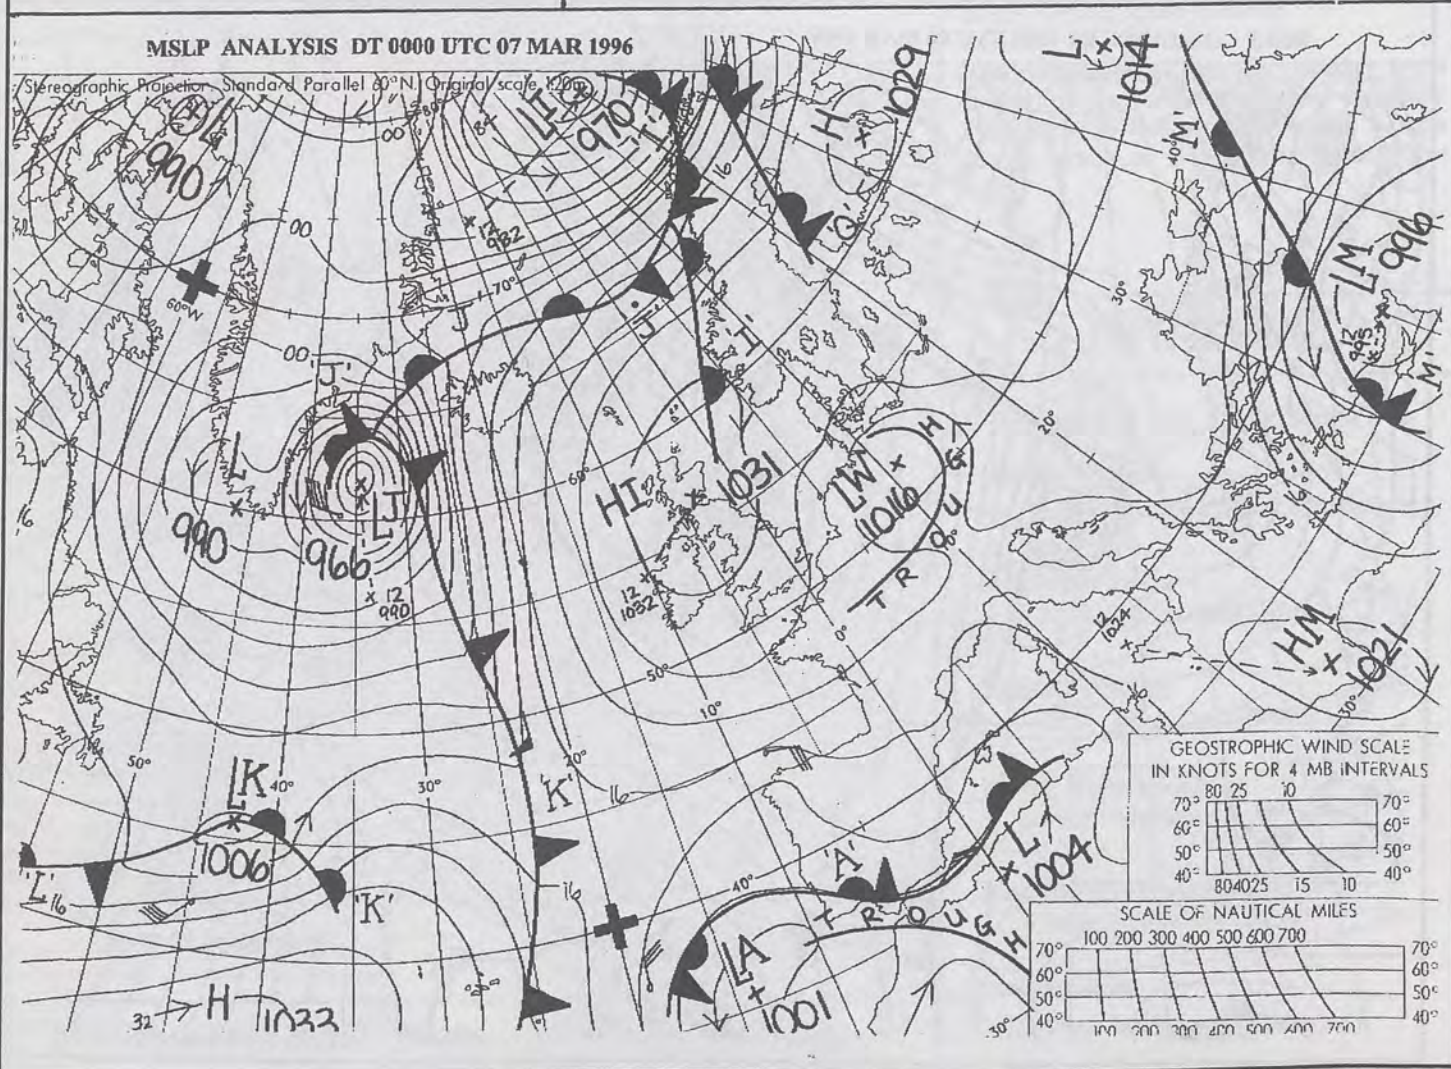 MSLP ANALYSIS DT 0000 UTC 07 MAR 1996
Stereographic Projection. Standard Parallel 60°N. Original scale 1:20m
L
990
LH
970
'I'
H
1029
L
1014
'M'
40°
LM
996
12
995
'M'
'Q'
12
982
16
60°W
70°
30°
'J'
'J'
'I'
20°
60°
L
990
LJ
966
12
990
HI
1031
12
1032
LW
1016
TROUGH
0°
12
1024
HM
1021
30°
50°
10°
0°
50°
40°
30°
20°
LK
1006
'K'
'K'
'L'
16
16
16
40°
'A'
L
1004
TROUGH
LA
1001
30°
32
H
1033
GEOSTROPHIC WIND SCALE
IN KNOTS FOR 4 MB INTERVALS
80 25 10
70° 70°
60° 60°
50° 50°
40° 40°
80 40 25 15 10
SCALE OF NAUTICAL MILES
100 200 300 400 500 600 700
70° 70°
60° 60°
50° 50°
40° 40°
100 200 300 400 500 600 700